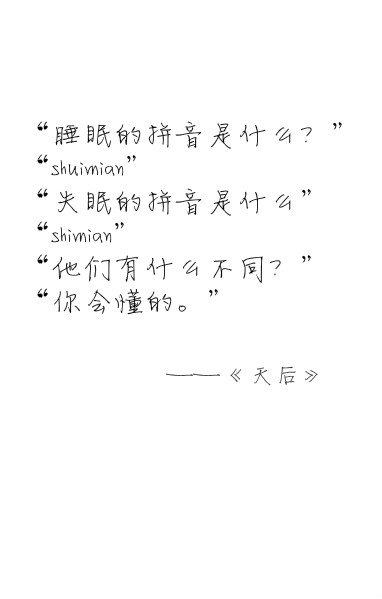 “睡眠的拼音是什么？”
“shuimian”
“失眠的拼音是什么”
“shimian”
“他们有什么不同？”
“你会懂的。”
——《天后》